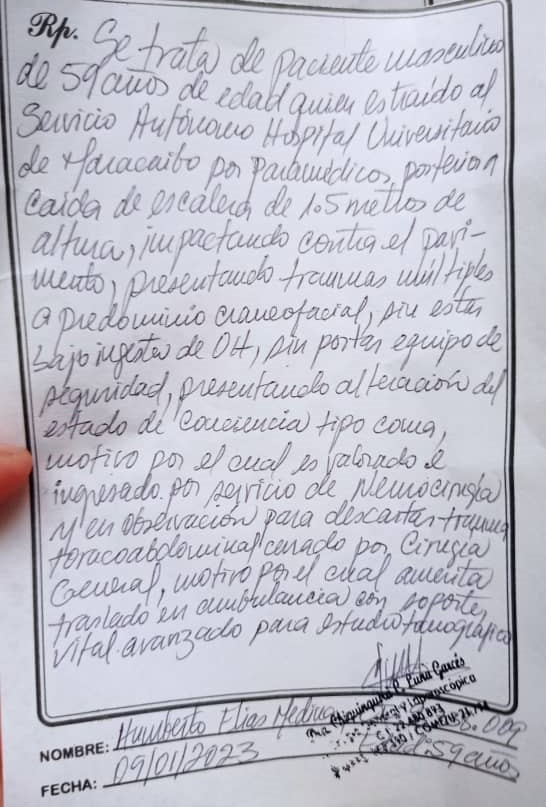 Rp. Se trata de paciente masculino
de 59 años de edad quien es traido al
Servicio Autónomo Hospital Universitario
de Maracaibo por paramédicos, posterior a
caida de escalera de 1.5 metros de
altura, impactando contra el pavi-
mento, presentando traumas multiples
a predominio craneofacial, sin estar
bajo ingesta de OH, sin portar equipo de
seguridad, presentando alteración del
estado de conciencia tipo coma,
motivo por el cual es valorado e
ingresado por servicio de Neurocirugía
y en observación para descartar trauma
toracoabdominal cerrado por Cirugía
General, motivo por el cual amerita
traslado en ambulancia con soporte
vital avanzado para estudio tomografico
Dra. Chiquinquirá C. Puria Garcés
General y Laparoscópica
NOMBRE: Humberto Elias Medina
009
FECHA: 09/01/2023
Edad: 59 años